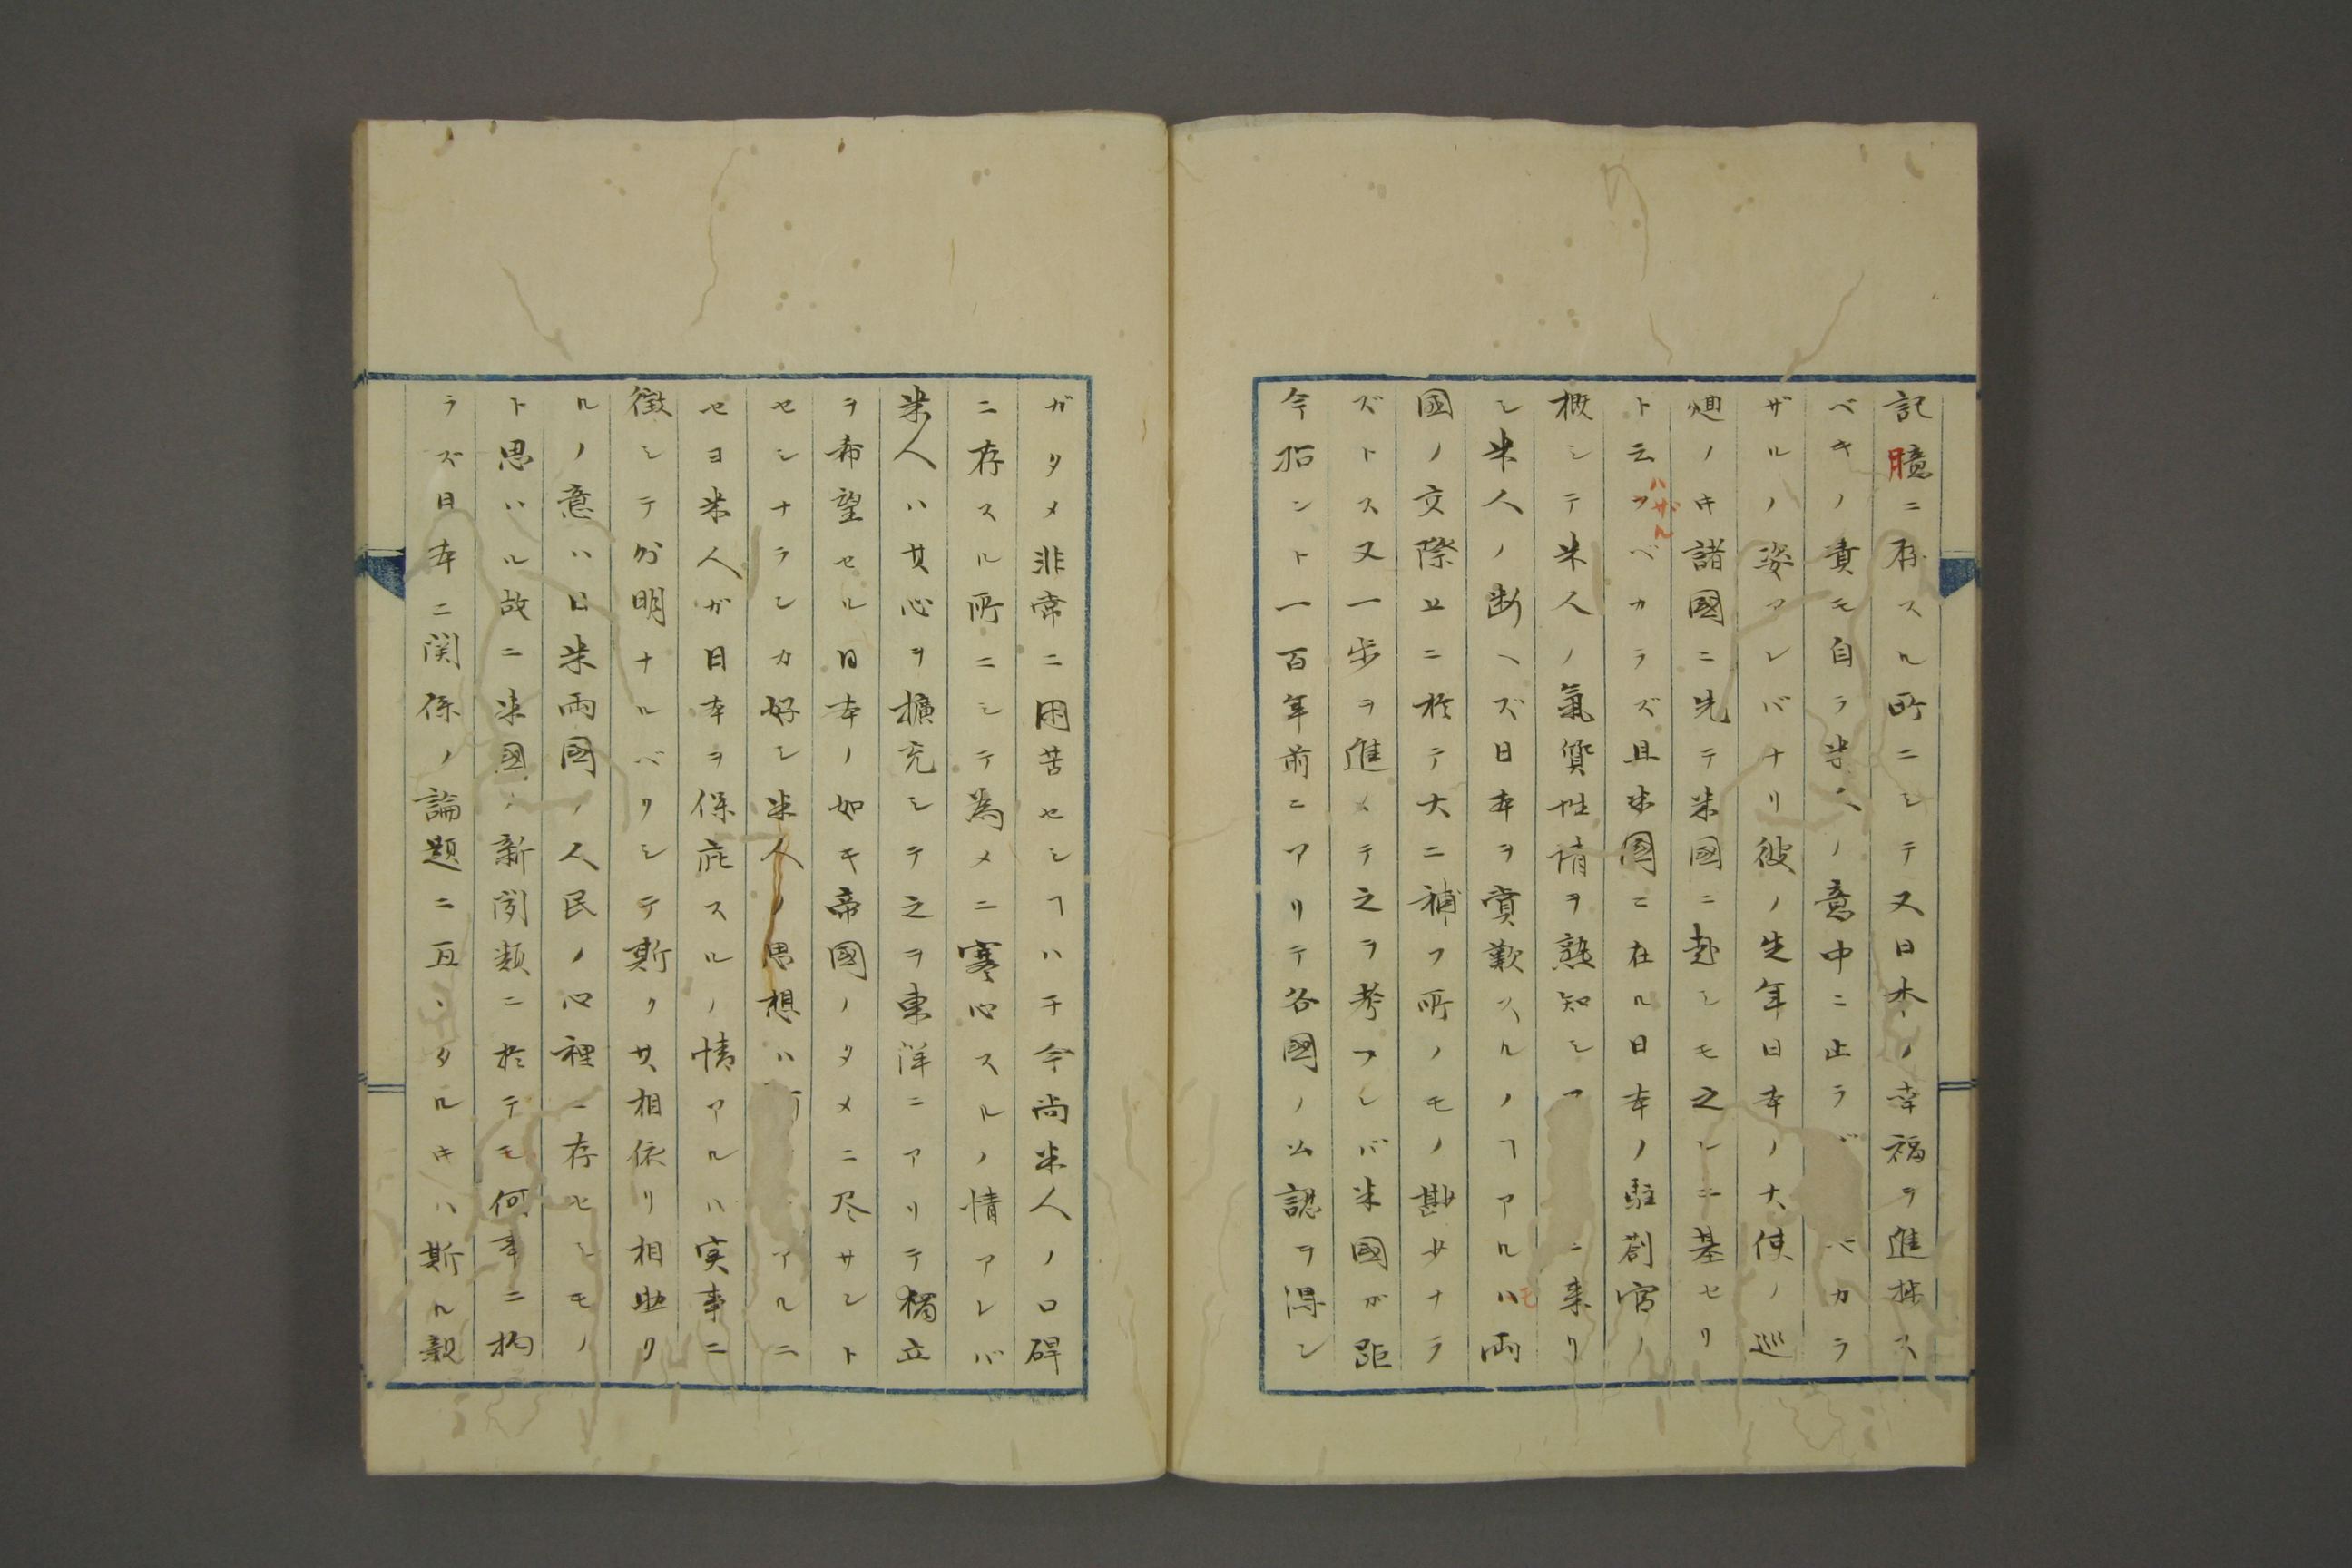 記臆ニ存スル所ニシテ又日本ノ幸福ヲ進捗ス
ベキノ責モ自ラ米人ノ意中ニ止ラバカラ
ザルノ姿アレバナリ彼ノ先年日本ノ大使ノ巡
廻ノキ諸國ニ先テ米國ニ赴シモ之レニ基セリ
ト云フベカラズ且米國ニ在ル日本ノ駐劄官ノ
ハザル
概シテ米人ノ氣質性情ヲ熟知シニ来リ
シ米人ノ断ヘズ日本ヲ賞歎スルノヿアルハ両
モ
國ノ交際上ニ於テ大ニ補フ所ノモノ尠ナラ
ズトス又一歩ヲ進メテ之ヲ考フレバ米國ガ距
今殆ント一百年前ニアリテ各國ノ公認ヲ得ン
ガタメ非常ニ困苦セシヿハ于今尚米人ノ口碑
ニ存スル所ニシテ為メニ寒心スルノ情アレバ
米人ハ其心ヲ擴充シテ之ヲ東洋ニアリテ獨立
ヲ希望セル日本ノ如キ帝國ノタメニ尽サント
セシナランカ好シ米人ノ思想ハアルニ
セヨ米人ガ日本ヲ保庇スルノ情アルハ実事ニ
徴シテ分明ナルバリシテ斯ク其相依リ相助ク
ルノ意ハ日米両國ノ人民ノ心裡ニ存セシモノ
ト思ハル故ニ米國ノ新聞類ニ於テモ何事ニ拘
ラズ日本ニ関係ノ論題ニ亘ンタルキハ斯ル親